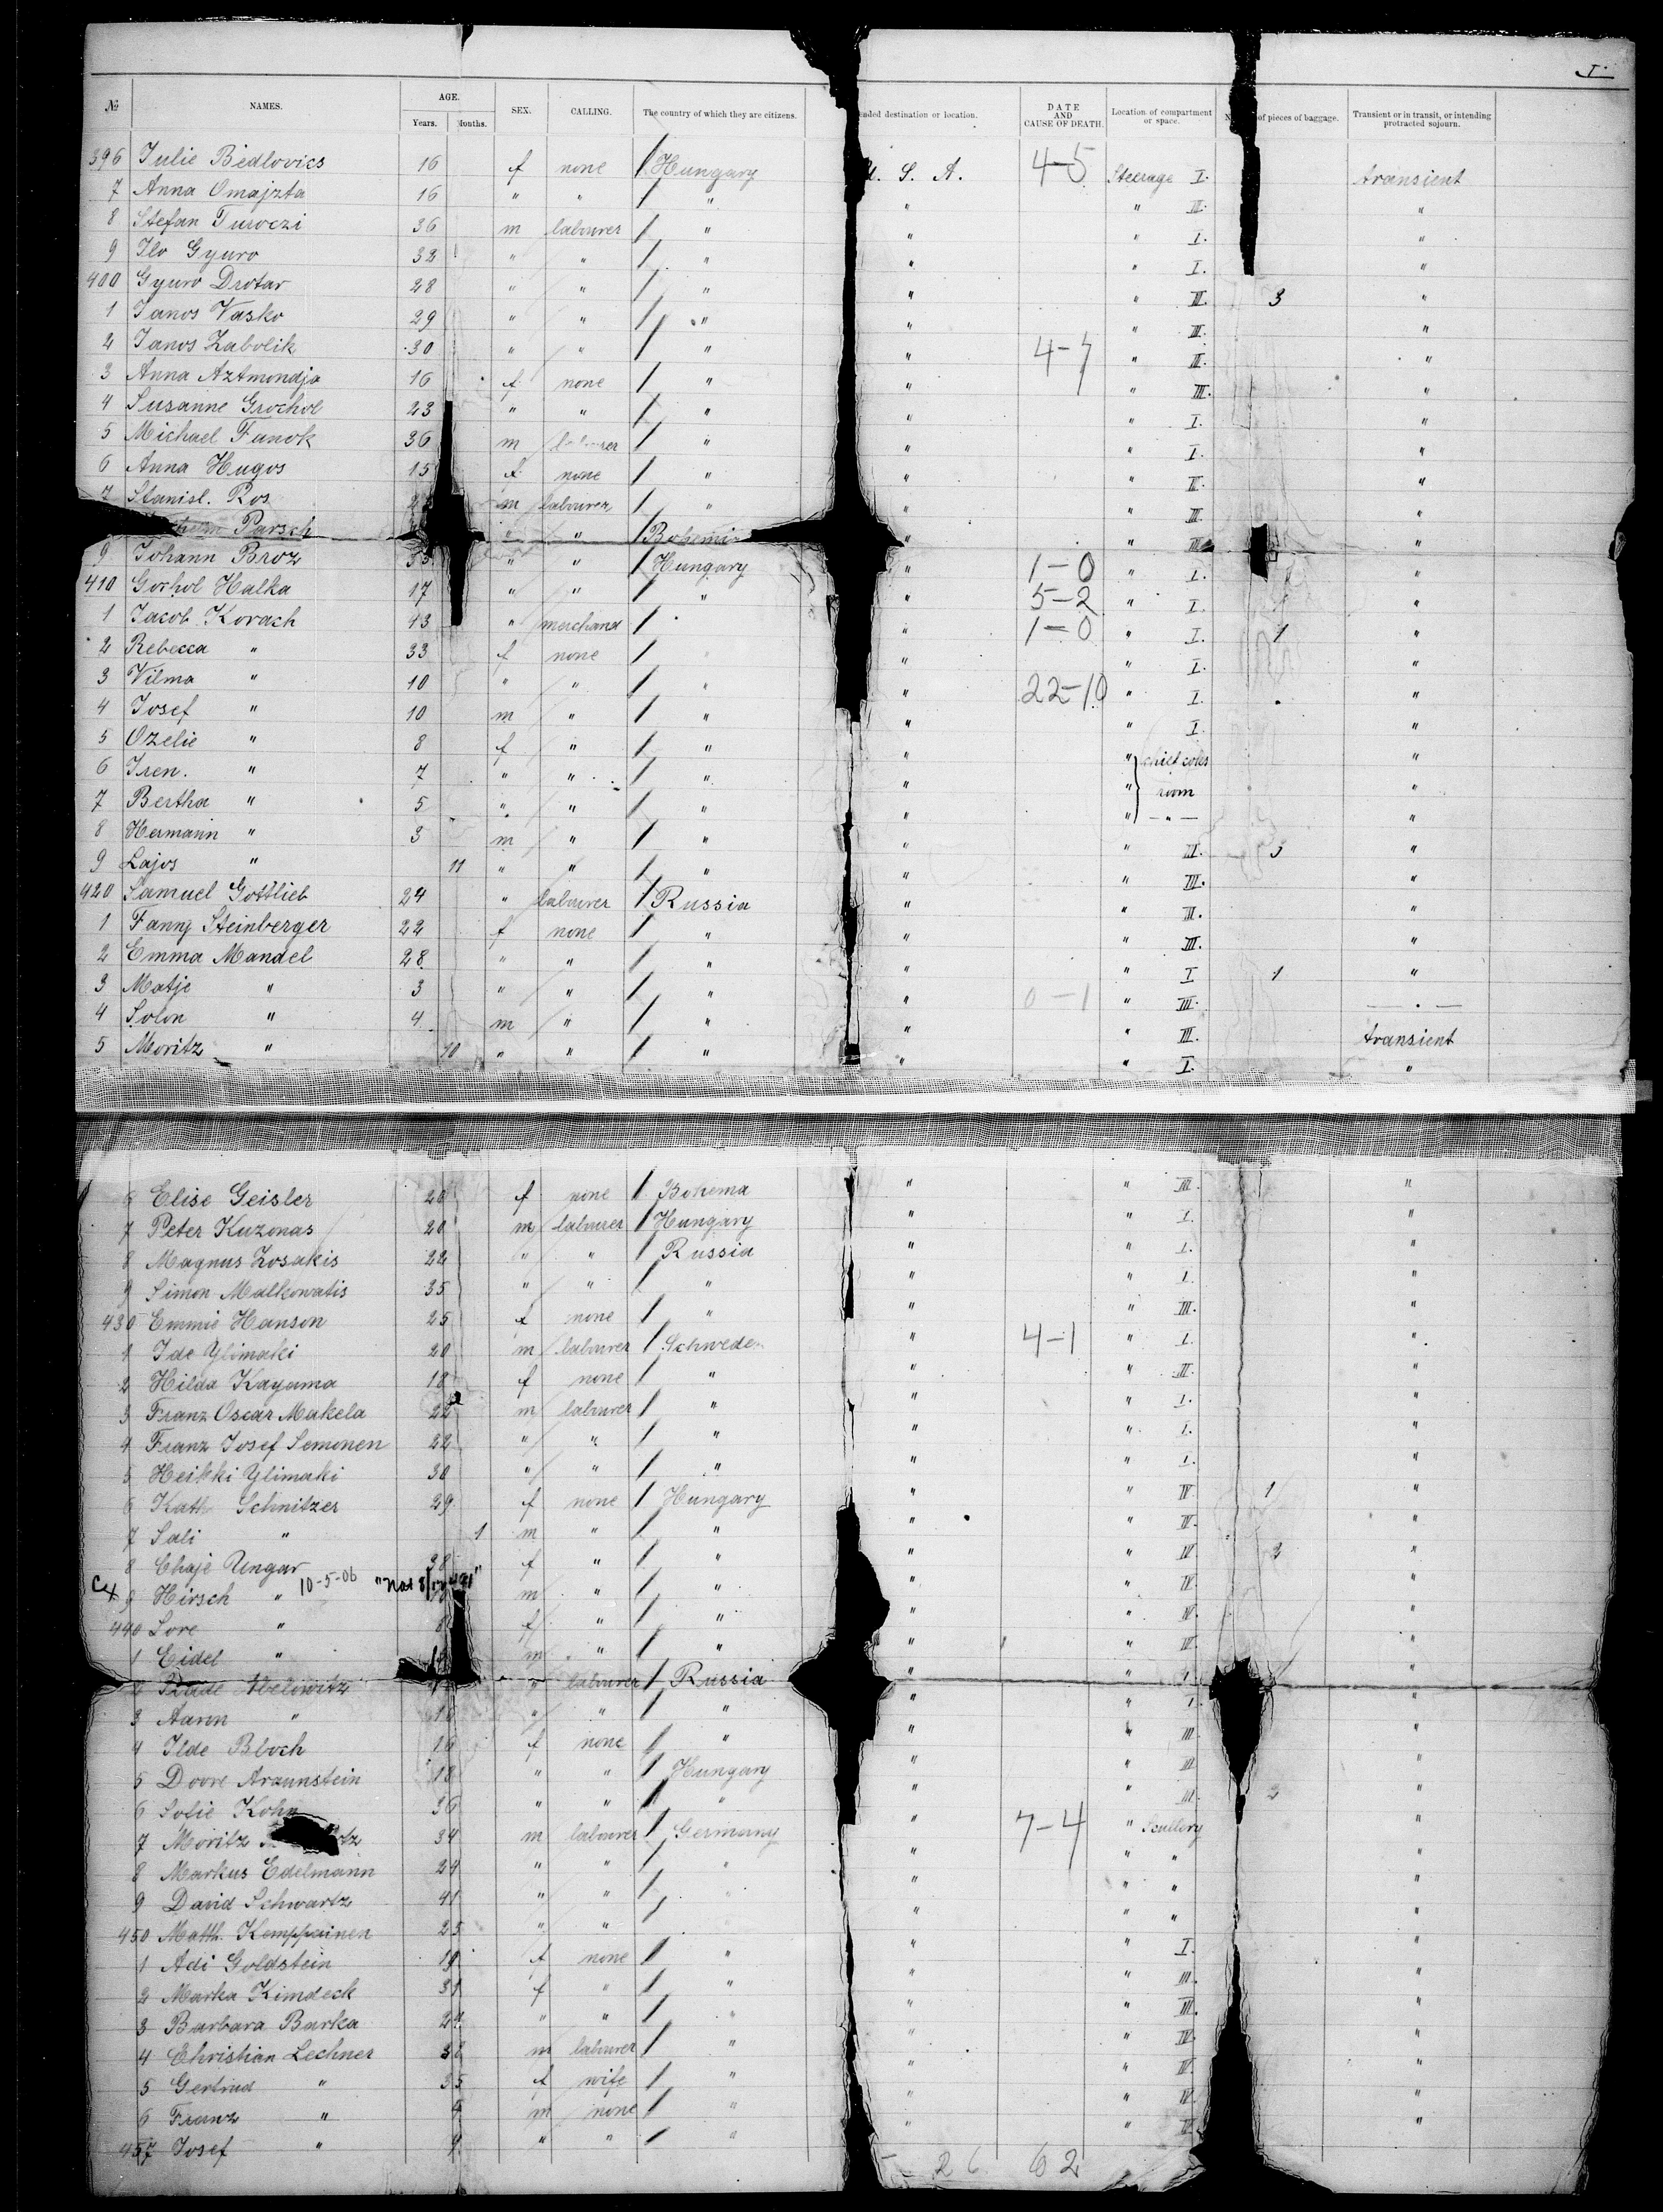 I.
№ NAMES. AGE. Years. Months. SEX. CALLING. The country of which they are citizens. ended destination or location. DATE AND CAUSE OF DEATH. Location of compartment or space. of pieces of baggage. Transient or in transit, or intending protracted sojourn.
396 Julie Bedlovics 16 f none / Hungary U. S. A. 4-5 Steerage I. transient
7 Anna Omajzta 16 " " / " " " II. "
8 Stefan Turoczi 36 m labourer / " " " I. "
9 Ilo Gyuro 32 " " / " " " I. "
400 Gyuro Drotar 28 " " / " " " II. 3 "
1 Janos Vasko 29 " " / " " " III. "
2 Janos Zabolik 30 " " / " " 4-7 " II. "
3 Anna Aztmondja 16 f none / " " " III. "
4 Susanne Grochol 23 " " / " " " I. "
5 Michael Fanok 36 m / " " " I. "
6 Anna Hugos 15 f none / " " " II. "
7 Stanisl. Ros m labourer / " " " III. "
Parsch " " Bohemi " " III "
9 Johann Broz 33 " " / Hungary " 1-0 " I. "
410 Gorhol Halka 17 " " / " " 5-2 " I. "
1 Jacob Korach 43 " merchand / " 1-0 " I. 1 "
2 Rebecca " 33 f none / " " " I. "
3 Vilma " 10 " " / " " 22-10 " I. "
4 Josef " 10 m " / " " " I. "
5 Ozelie " 8 f " / " " " "
6 Iren. " 7 " " / " " " room "
7 Bertha " 5 " " / " " " — " — "
8 Hermann " 3 m " / " " " III. 3 "
9 Lajos " 11 " " / " " " III. "
420 Samuel Gottlieb 24 " labourer / Russia " " II. "
1 Fanny Steinberger 22 f none / " " " III. "
2 Emma Mandel 28 " " / " " " I 1 "
3 Matje " 3 " " / " " 0-1 " III. — . —
4 Solon " 4 m " / " " " III. transient
5 Moritz " 10 " " / " " " I. "
6 Elise Geisler 20 f none / Bohema " " III. "
7 Peter Kuzonas 20 m labourer / Hungary " " I. "
8 Magnus Zosakis 22 " " / Russia " " I. "
9 Simon Malkowatis 35 " " / " " " I. "
430 Emmie Hanson 25 f none / " " " III. "
1 Ide Ylimaki 20 m labourer / Schwede " 4-1 " I. "
2 Hilda Kayama 18 f none / " " " III. "
3 Franz Oscar Makela 22 m labourer / " " " I. "
4 Franz Josef Semonen 22 " " / " " " I. "
5 Heikki Ylimaki 30 " " / " " " I. "
6 Kath Schnitzer 29 f none / Hungary " " IV 1 "
7 Sali " 1 m " / " " " IV. "
8 Chaje Ungar 38 f " / " " " IV 2 "
10-5-06
9 Hirsch " m " / " " " IV. "
440 Lore " 8 f " / " " " IV. "
1 Eidel " m " / " " " IV. "
2 Abelowitz " labourer / Russia " " I. "
3 Aaron " " " / " " " I. "
4 Ilde Bloch 16 f none / " " " III. "
5 Dovre Araunstein 18 " " / Hungary " " III "
6 Sofie Kohn 36 " " / " " " III. 2 "
7 Moritz tz 34 m labourer / Germany " 7-4 " Scullery "
8 Markus Edelmann 24 " " / " " " " "
9 David Schwartz 41 " " / " " " " "
450 Matth. Kemppainen 25 " " / " " " "
1 Adi Goldstein 19 f none / " " " I. "
2 Marka Kimdeck 31 f " / " " " III. "
3 Barbara Burka " " / " " " III. "
4 Christian Lechner 38 m labourer / " " " IV. "
5 Gertrud " 35 f wife / " " " IV. "
6 Franz " 9 m none / " " " IV. "
457 Josef " " " / " " " IV. "
26 62